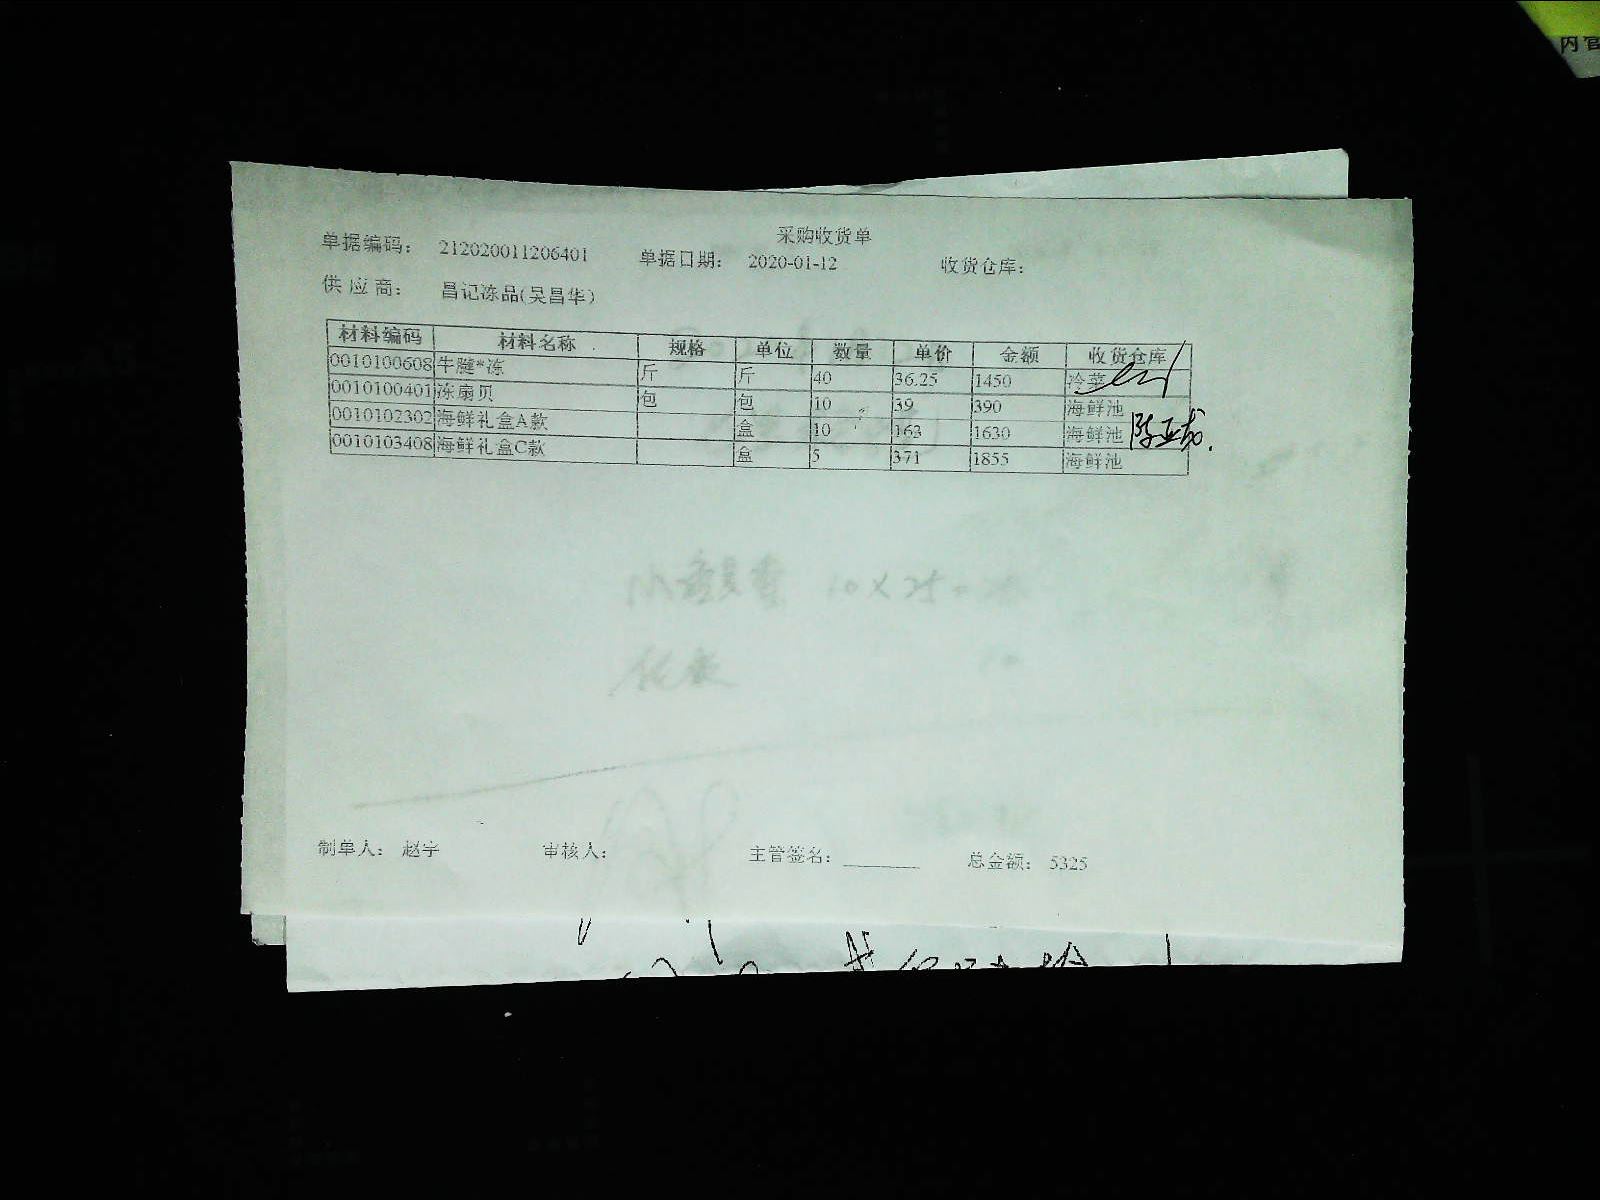 内官
采购收货单
单据编码： 212020011206401 单据日期： 2020-01-12 收货仓库：
供应商： 昌记冻品(吴昌华)
材料编码 材料名称 规格 单位 数量 单价 金额 收货仓库
0010100608 牛腱*冻 斤 斤 40 36.25 1450 冷菜
0010100401 冻扇贝 包 包 10 39 390 海鲜池
0010102302 海鲜礼盒A款 盒 10 163 1630 海鲜池
0010103408 海鲜礼盒C款 盒 5 371 1855 海鲜池
10×25=
制单人： 赵宇 审核人： 主管签名： 总金额： 5325